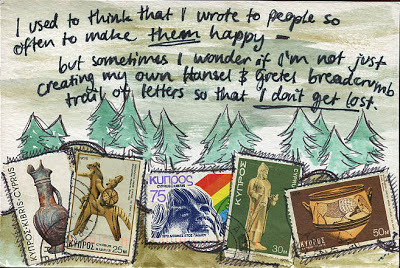 I used to think that I wrote to people so
often to make them happy –
but sometimes I wonder if I'm not just
creating my own Hansel & Gretel breadcrumb
trail of letters so that I don't get lost.
ΚΥΠΡΟΣ-KIBRIS-CYPRUS
ΚΥΠΡΟΣ
25M
ΚΥΠΡΟΣ
75
ΚΥΠΡΟΣ
30M
ΚΥΠΡΟΣ
50M